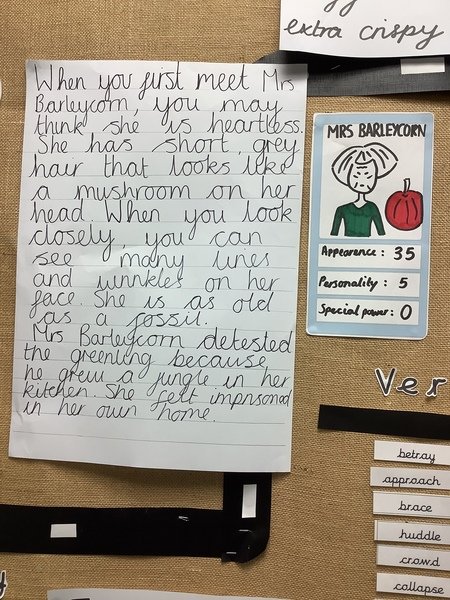 extra crispy
When you first meet Mrs
Barleycorn, you may
think she is heartless.
She has short, grey
hair that looks like
a mushroom on her
head. When you look
closely, you can
see many lines
and wrinkles on her
face. She is as old
as a fossil.
Mrs Barleycorn detested
the greenling because
he grew a jungle in her
kitchen. She felt imprisoned
in her own home.
MRS BARLEYCORN
Appearence: 35
Personality: 5
Special power: 0
Ver
betray
approach
brace
huddle
crowd
collapse